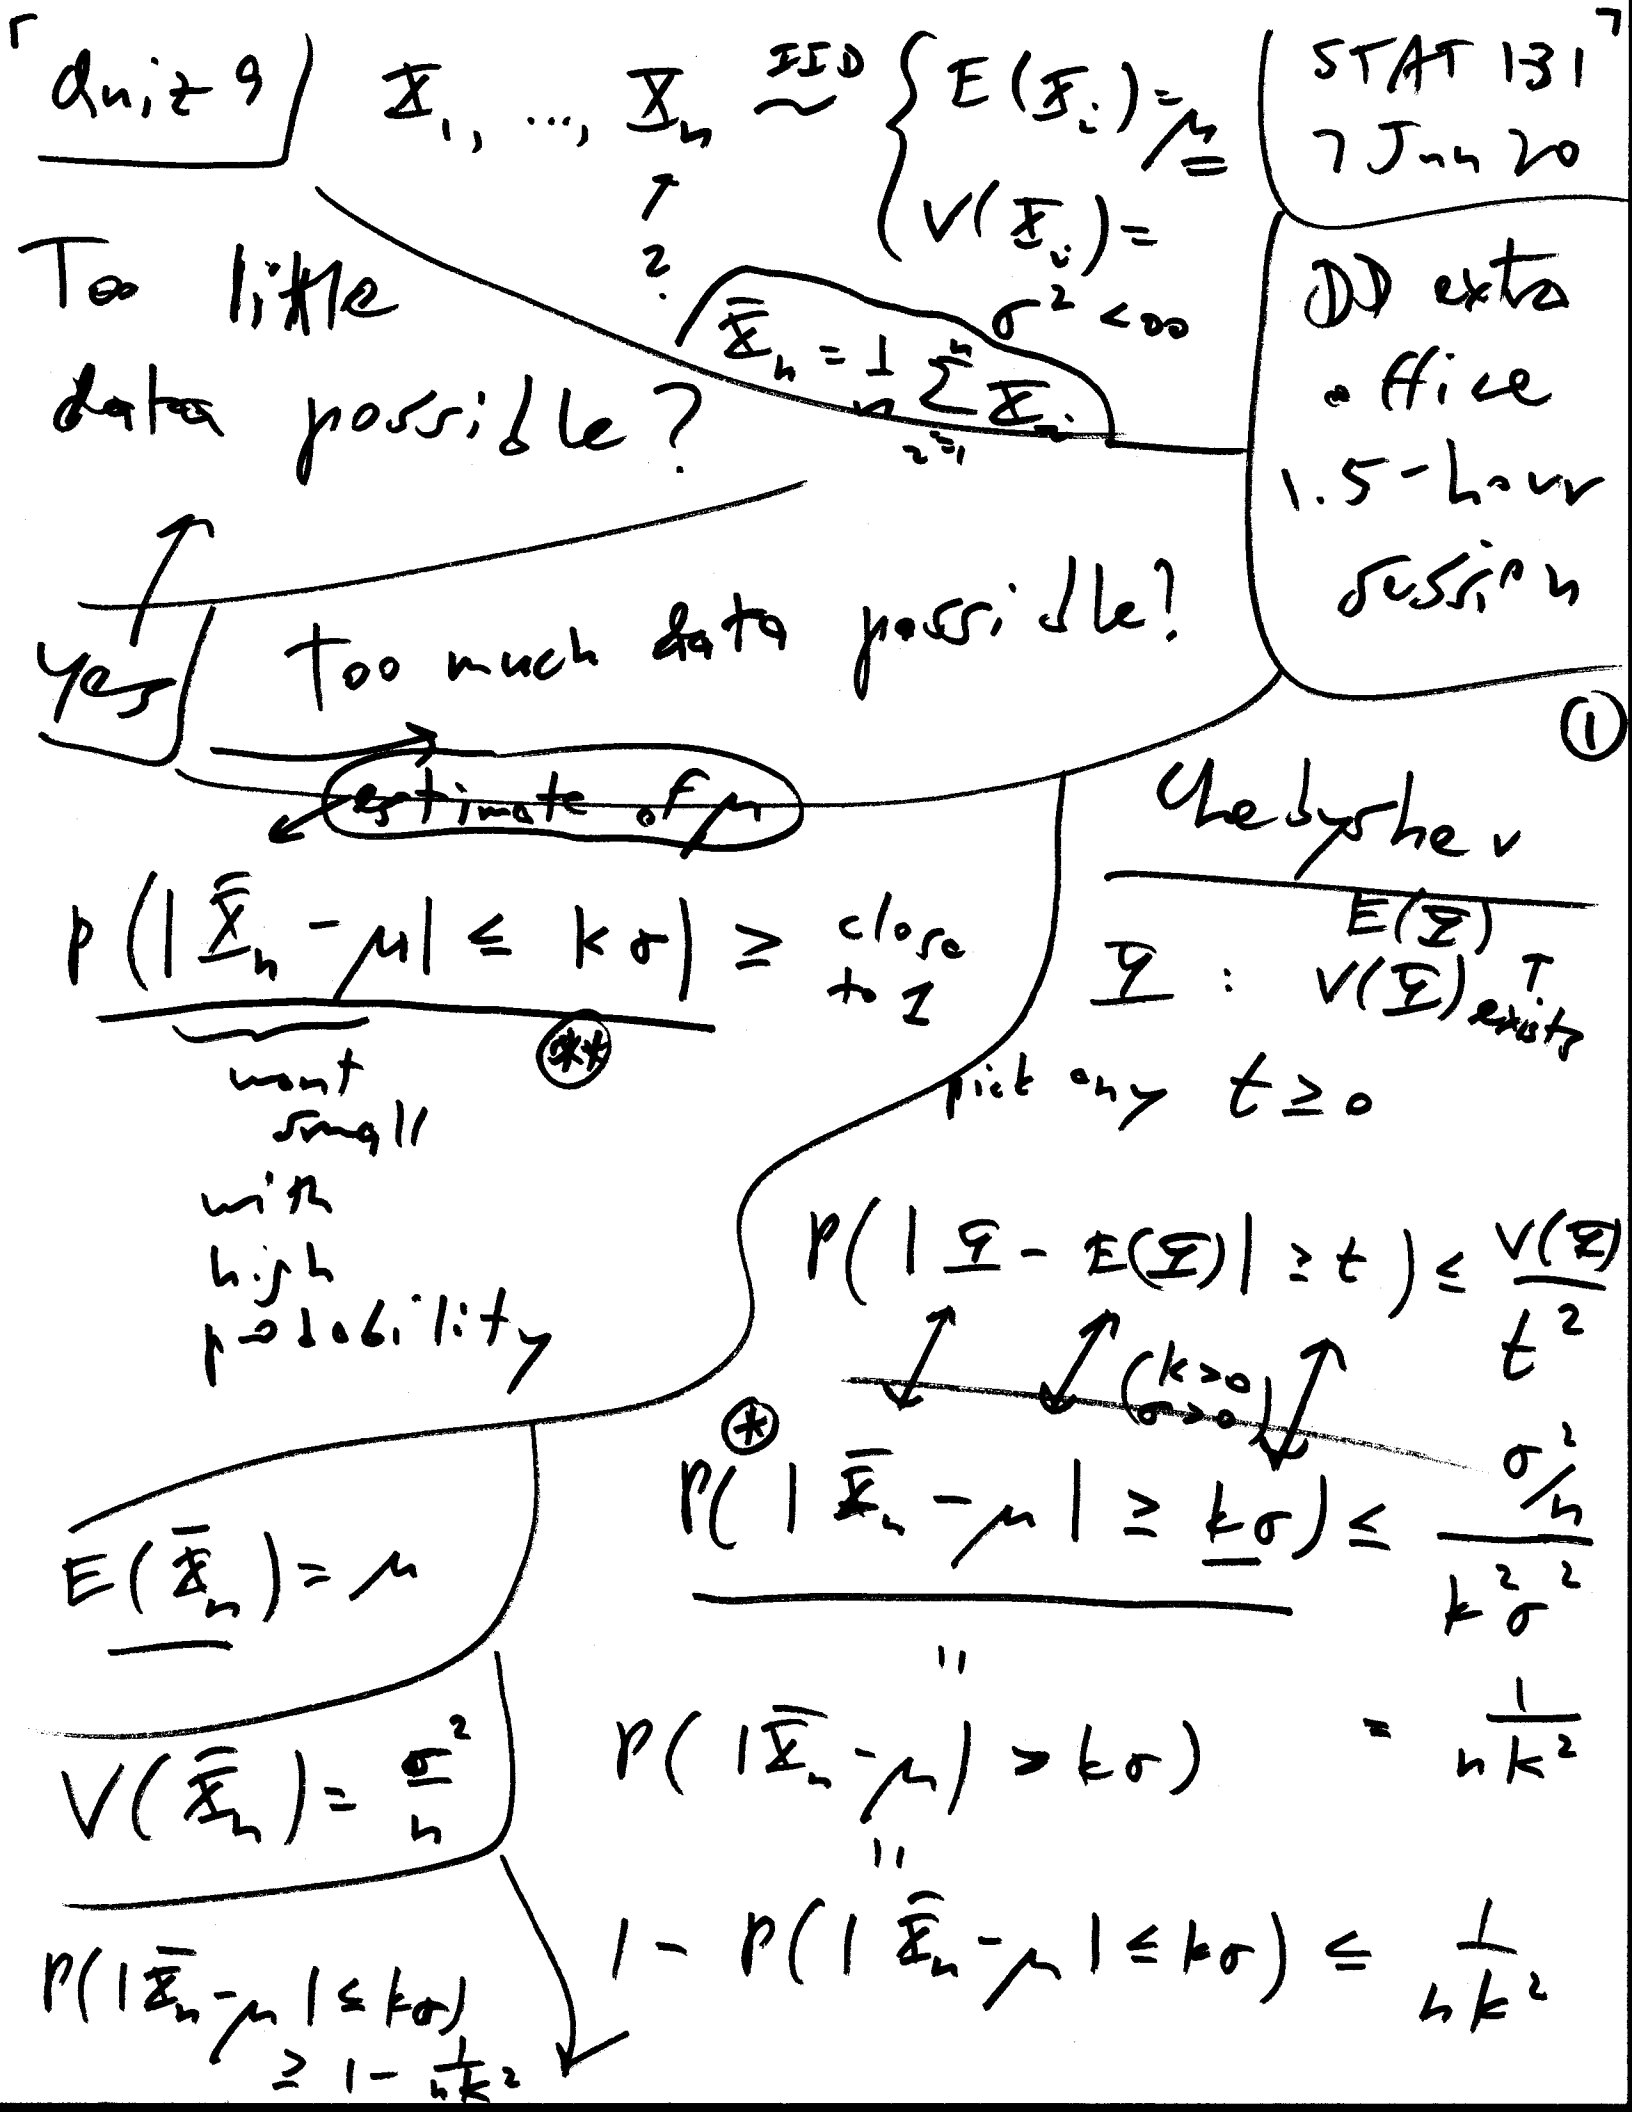 Quiz 9
X̄₁, ..., X̄ₙ ~ IID { E(X̄ᵢ) = μ
V(X̄ᵢ) = σ² < ∞
↑
?
STAT 131
7 Jun 20
DD extra
office
1.5-hour
session
Too little
data possible?
X̄ₙ = 1/n Σᵢ₌₁ⁿ Xᵢ
yes
Too much data possible?
①
estimate of μ
P(|X̄ₙ - μ| ≤ kσ) ≥ close to 1
(**)
want
small
with
high
probability
Chebyshev
Y : E(Y)
V(Y) ↑ exists
pick any t ≥ 0
P(|Y - E(Y)| ≥ t) ≤ V(Y)/t²
(k > 0
σ > 0)
(*)
P(|X̄ₙ - μ| ≥ kσ) ≤ (σ²/n)/(k²σ²)
"
P(|X̄ₙ - μ| > kσ) = 1/(nk²)
"
1 - P(|X̄ₙ - μ| ≤ kσ) ≤ 1/(nk²)
E(X̄ₙ) = μ
V(X̄ₙ) = σ²/n
P(|X̄ₙ - μ| ≤ kσ)
≥ 1 - 1/(nk²)